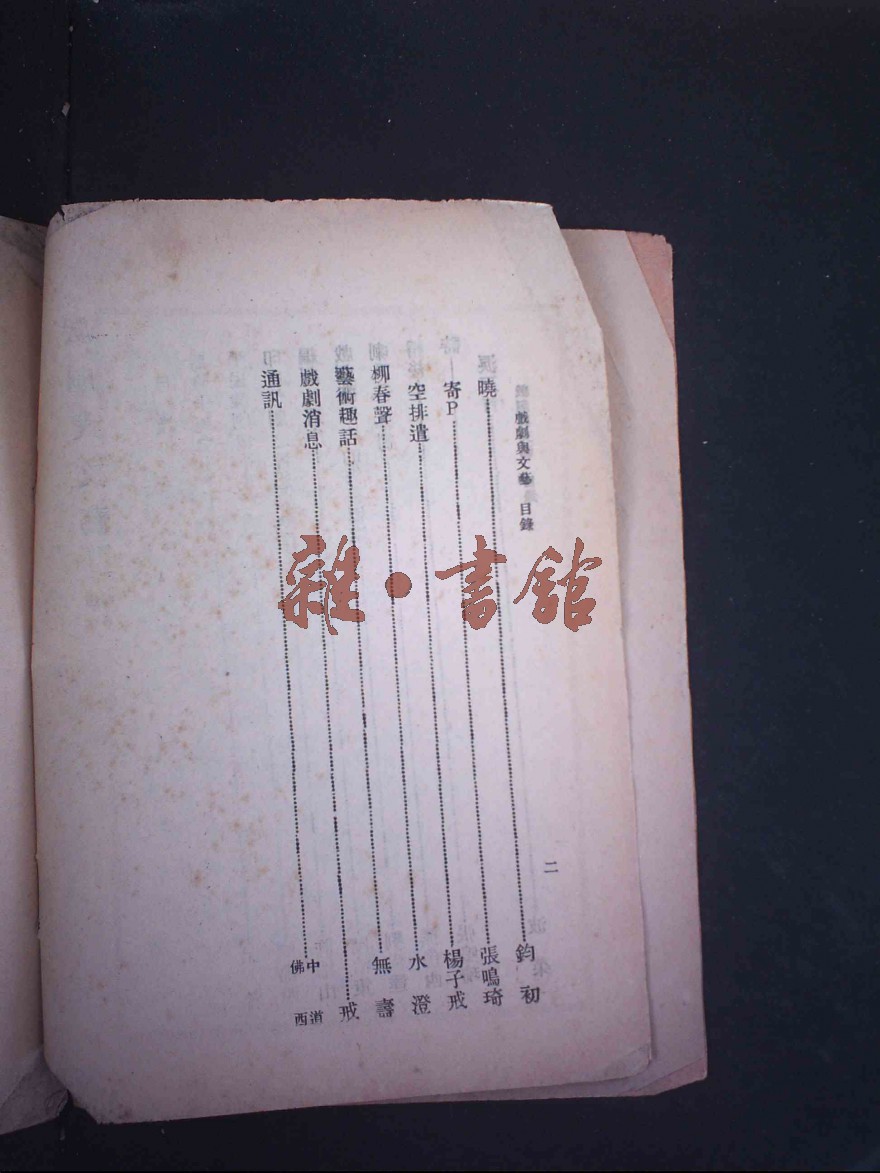 戲劇與文藝 目錄
二
曉……鈞初
寄P……張鳴琦
空排遣……楊子戒
柳春聲……水澄
藝術趣話……無壽
戲劇消息……戒
通訊……中道
佛西
雜·書館